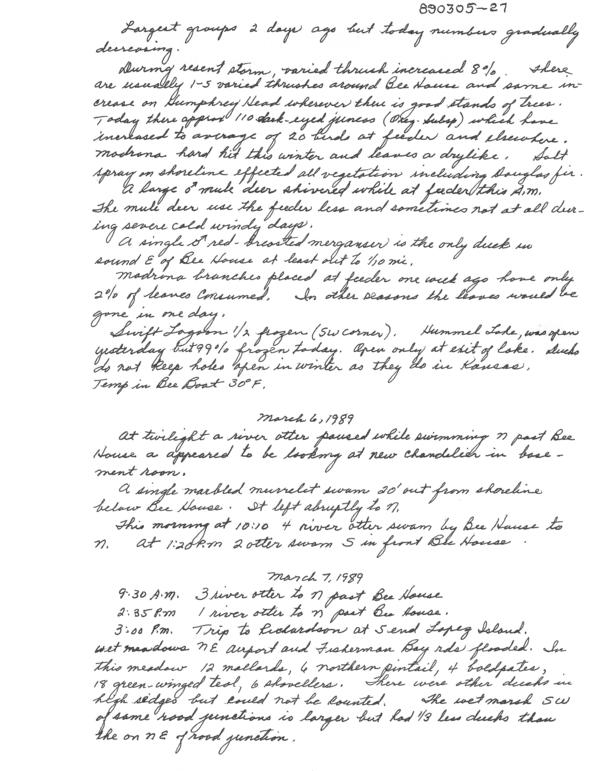 890305-27
Largest groups 2 days ago but today numbers gradually
decreasing.
During resent storm, varied thrush increased 8%. There
are usually 1-5 varied thrushes around Bee House and same in-
crease on Humphrey Head wherever there is good stands of trees.
Today there approx 110 dark-eyed juncos (Oreg. Subsp) which have
increased to average of 20 birds at feeder and elsewhere.
Madrona hard hit this winter and leaves a drylike. Salt
spray on shoreline effected all vegetation including Douglas fir.
A large ♂ mule deer shivered while at feeder this A.M.
The mule deer use the feeder less and sometimes not at all dur-
ing severe cold windy days.
A single ♂ red-breasted merganser is the only duck in
sound E of Bee House at least out to 1/10 mi.
Madrona branches placed at feeder one week ago have only
2% of leaves consumed. In other seasons the leaves would be
gone in one day.
Swift Lagoon 1/2 frozen (SW corner). Hummel Lake, was open
yesterday but 99% frozen today. Open only at exit of lake. Ducks
do not keep holes open in winter as they do in Kansas.
Temp in Bee Boat 30°F.
March 6, 1989
At twilight a river otter paused while swimming N past Bee
House a appeared to be looking at new chandelier in base-
ment room.
A single marbled murrelet swam 20' out from shoreline
below Bee House. It left abruptly to N.
This morning at 10:10 4 river otter swam by Bee House to
N. At 1:20 P.M 2 otter swam S in front Bee House.
March 7, 1989
9:30 A.M. 3 river otter to N past Bee House
2:35 P.M 1 river otter to N past Bee House.
3:00 P.M. Trip to Richardson at S end Lopez Island.
Wet meadows NE Airport and Fisherman Bay rds flooded. In
this meadow 12 mallards, 6 northern pintail, 4 baldpates,
18 green-winged teal, 6 shovellers. There were other ducks in
high sedges but could not be counted. The wet marsh SW
of same road junctions is larger but had 1/3 less ducks than
the on NE of road junction.